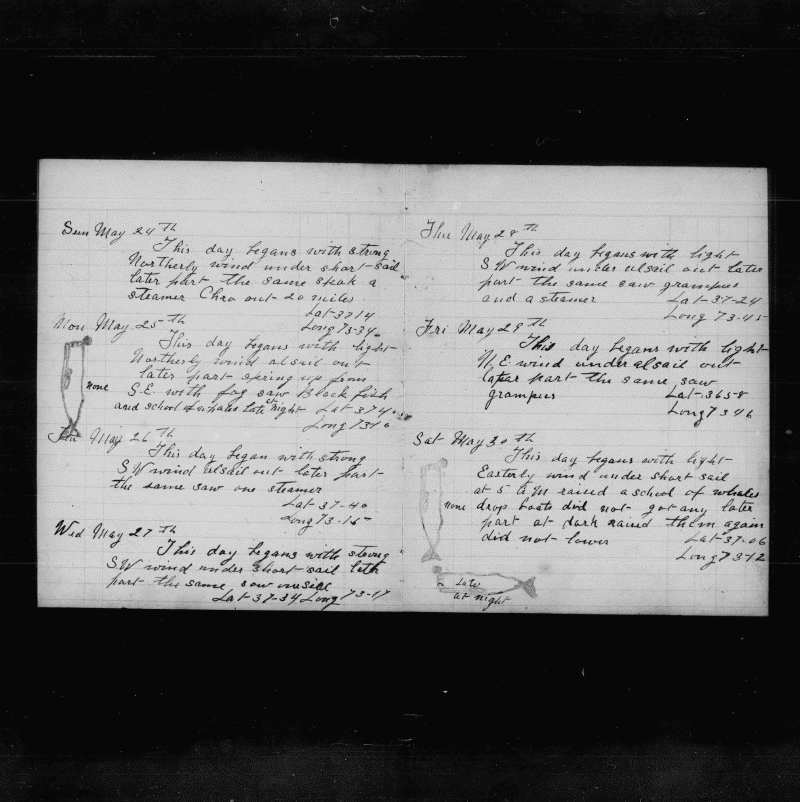 Sun May 24th
This day begans with strong
Northerly wind under short sail
later part the same speak a
steamer Chro out 20 miles
Lat 37 14
Long 73-34
Mon May 25th
This day begans with light
Northerly wind alsail out
later part spring up from
none S.E. with fog saw Black fish
and school of whales late at night Lat 37 4
Long 73
May 26th
This day began with strong
S W wind alsail out later part
the same saw one steamer
Lat 37-40
Long 73-15
Wed May 27th
This day begans with strong
S W wind under short sail
part the same saw
Lat 37-34 Long 73-17
Thu May 28th
This day begans with light
S W wind under alsail out later
part the same saw grampus
and a steamer Lat 37-24
Long 73-45
Fri May 29th
This day begans with light
N, E wind under alsail out
later part the same saw
grampus Lat 36 58
Long 73 46
Sat May 30th
This day begans with light
Easterly wind under short sail
at 5 A M raised a school of whales
none drop boats did not got any later
part at dark raised them again
did not lower Lat 37-06
Long 73 12
Late
at night